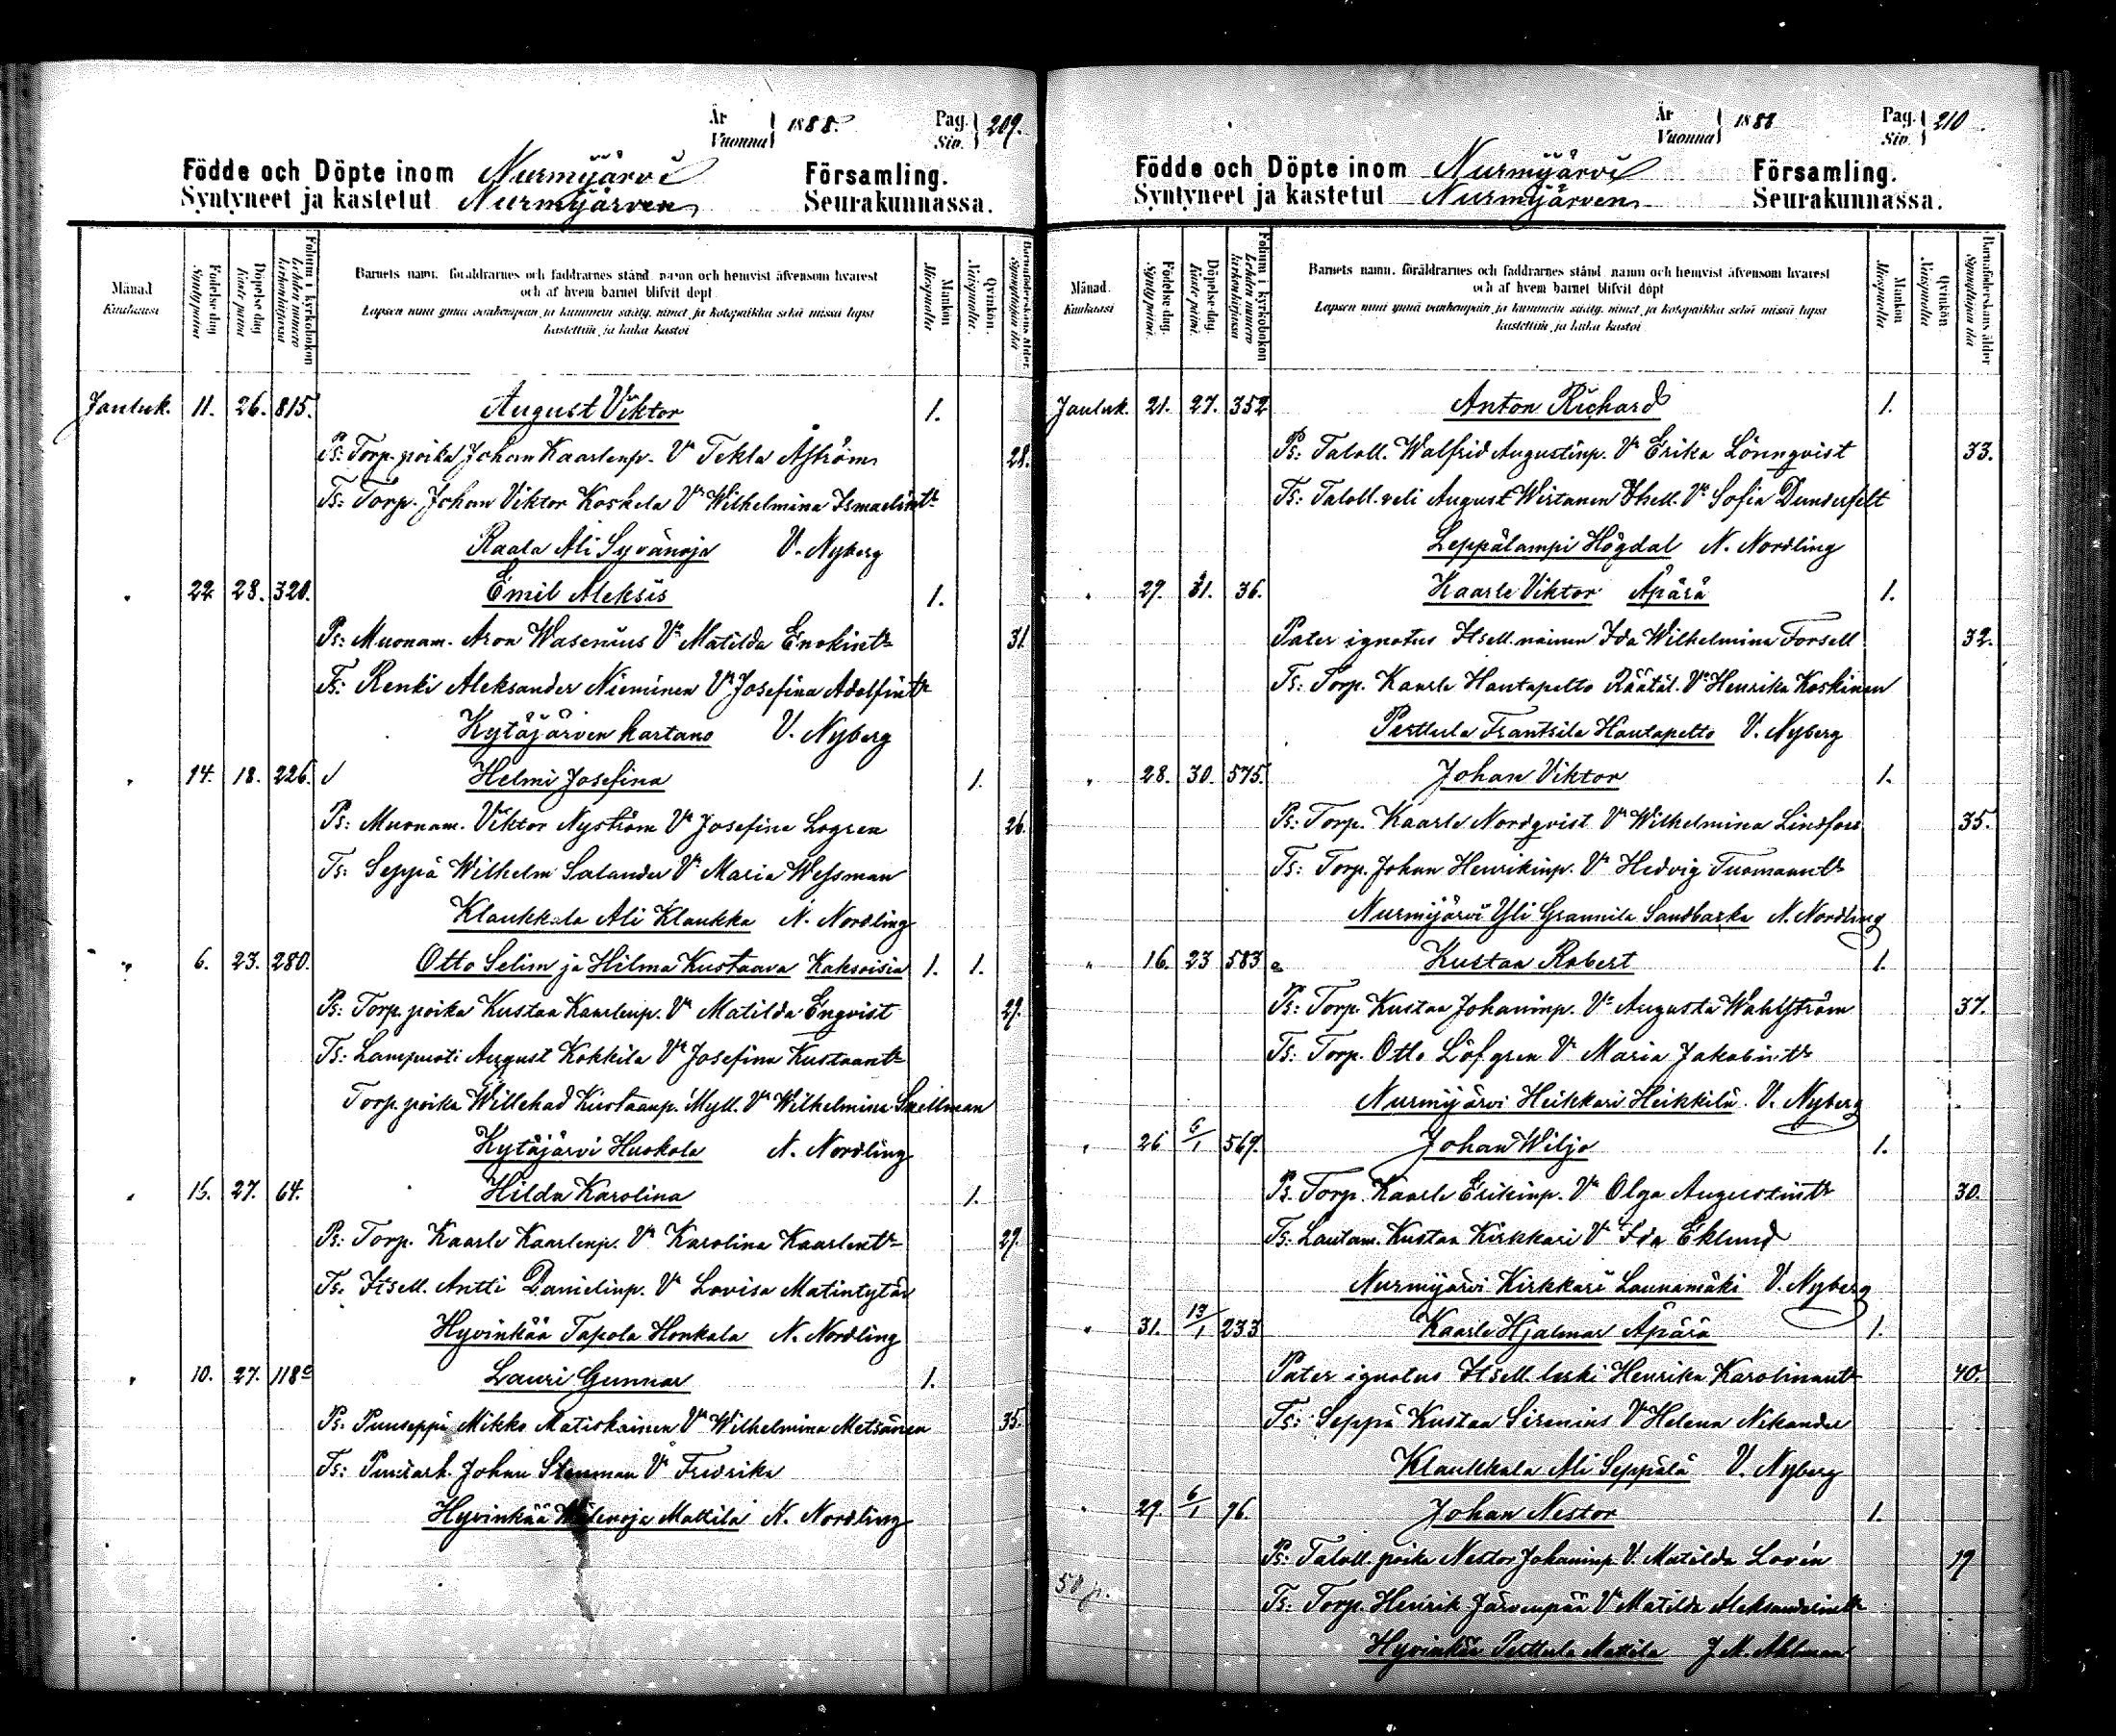 År Vuonna } 1888. Pag. Siv. } 209.
Födde och Döpte inom Nurmijärvi Församling.
Syntyneet ja kastetut Nurmijärven Seurakunnassa.
Månad Kuukausi
Födelse-dag Syntypäivä
Döpelse-dag Kaste-päivä
Folium i kyrkoboken Lehden numero kirkonkirjassa
Barnets namn, föräldrarnes och faddrarnes stånd, namn och hemvist äfvensom hvarest
och af hvem barnet blifvit döpt
Lapsen nimi ynnä vanhempain ja kummein sääty, nimet ja kotopaikka sekä missä lapsi
kastettiin ja kuka kastoi
Mankön Miespuolia
Qvinkön. Naispuolia.
Barnaföderskans ålder. Synnyttäjän ikä
Jouluk. 11. 26. 815. August Viktor 1.
Ps: Torp. poika Johan Kaarlenp. Vo Tekla Åström 28.
Ts: Torp. Johan Viktor Koskela Vo Wilhelmina Ismaelintr
Raala Ali Syvänoja V. Nyberg
" 22. 28. 320. Emil Aleksis 1.
Ps: Muonam. Aron Wasenius Vo Matilda Enokintr 31.
Ts: Renki Aleksander Nieminen Vo Josefina Adolfintr
Kytäjärven kartano V. Nyberg
" 14. 18. 226. Helmi Josefina 1.
Ps: Muonam. Viktor Nyström Vo Josefina Logren 26.
Ts: Seppä Wilhelm Salander Vo Maria Wessman
Klaukkala Ali Klaukka N. Nordling
" 6. 23. 280. Otto Selim ja Hilma Kustaava Kaksoisia 1. 1.
Ps: Torp. poika Kustaa Kaarlenp. Vo Matilda Enqvist 29.
Ts: Lampuoti August Kokkila Vo Josefina Kustaantr
Torp. poika Willehad Kustaanp. Myll. Vo Wilhelmina Snellman
Kytäjärvi Huskola N. Nordling
" 15. 27. 64. Hilda Karolina 1.
Ps: Torp. Kaarle Kaarlenp. Vo Karolina Kaarlentr 29.
Ts. Itsell. Antti Danielinp. Vo Lovisa Matintytär
Hyvinkää Tapola Honkala N. Nordling
" 10. 27. 118c Lauri Gunnar 1.
Ps: Puuseppä Mikko Matiskainen Vo Wilhelmina Metsänen 35.
Ts: Johan Stenman Vo Fredrika
Hyvinkää Mattila N. Nordling
År Vuonna } 1888 Pag. Siv. } 210.
Födde och Döpte inom Nurmijärvi Församling.
Syntyneet ja kastetut Nurmijärven Seurakunnassa.
Månad. Kuukausi
Födelse-dag. Syntypäivä.
Döpelse-dag. Kaste-päivä.
Folium i kyrkoboken Lehden numero kirkonkirjassa
Barnets namn, föräldrarnes och faddrarnes stånd, namn och hemvist äfvensom hvarest
och af hvem barnet blifvit döpt
Lapsen nimi ynnä vanhempain ja kummein sääty, nimet ja kotopaikka sekä missä lapsi
kastettiin ja kuka kastoi
Mankön Miespuolia
Qvinkön. Naispuolia
Barnaföderskans ålder Synnyttäjän ikä
Jouluk. 21. 27. 352 Anton Richard 1.
Ps: Taloll. Walfrid Augustinp. Vo Erika Lönnqvist 33.
Ts: Taloll. veli August Wirtanen Itsell. Vo Sofia Dunderfelt
Leppälampi Högdal N. Nordling
" 27. 31. 36. Kaarle Viktor Äpärä 1.
Pater ignotus Itsell. nainen Ida Wilhelmina Forsell 32.
Ts: Torp. Kaarle Hautapelto Räätäl. Vo Henrika Koskinen
Perttula Frantsila Hautapelto V. Nyberg
" 28. 30. 575. Johan Viktor 1.
Ps: Torp. Kaarle Nordqvist Vo Wilhelmina Lindfors 35.
Ts: Torp. Johan Henrikinp. Vo Hedvig Tuomaantr
Nurmijärvi Yli Grannila Sandbacka N. Nordling
" 16. 23 583 a Kustaa Robert 1.
Ps: Torp. Kustaa Johaninp. Vo Augusta Wahlström 37.
Ts: Torp. Otto Löfgren Vo Maria Jakobintr
Nurmijärvi Heikkari Heikkilä. V. Nyberg
" 26 6/1 569. Johan Wiljo 1.
Ps. Torp. Kaarle Erikinp. Vo Olga Augustintr 30.
Ts: Lautam. Kustaa Kirkkari Vo Ida Eklund
Nurmijärvi Kirkkari Launamäki V. Nyberg
" 31. 13/1 233 Kaarle Hjalmar Äpärä 1.
Pater ignotus Itsell. leski Henrika Karolinantr 40.
Ts: Seppä Kustaa Sirenius Vo Helena Nikander
Klaukkala Ali Seppälä V. Nyberg
" 29. 6/1 96. Johan Nestor 1.
Ps: Taloll. poika Nestor Johaninp. Vo Matilda Lovén 19
50 p.
Ts: Torp. Henrik Järvenpää Vo Matilda Aleksanderintr
Hyvinkää Perttula Mattila J. M. Ahlman